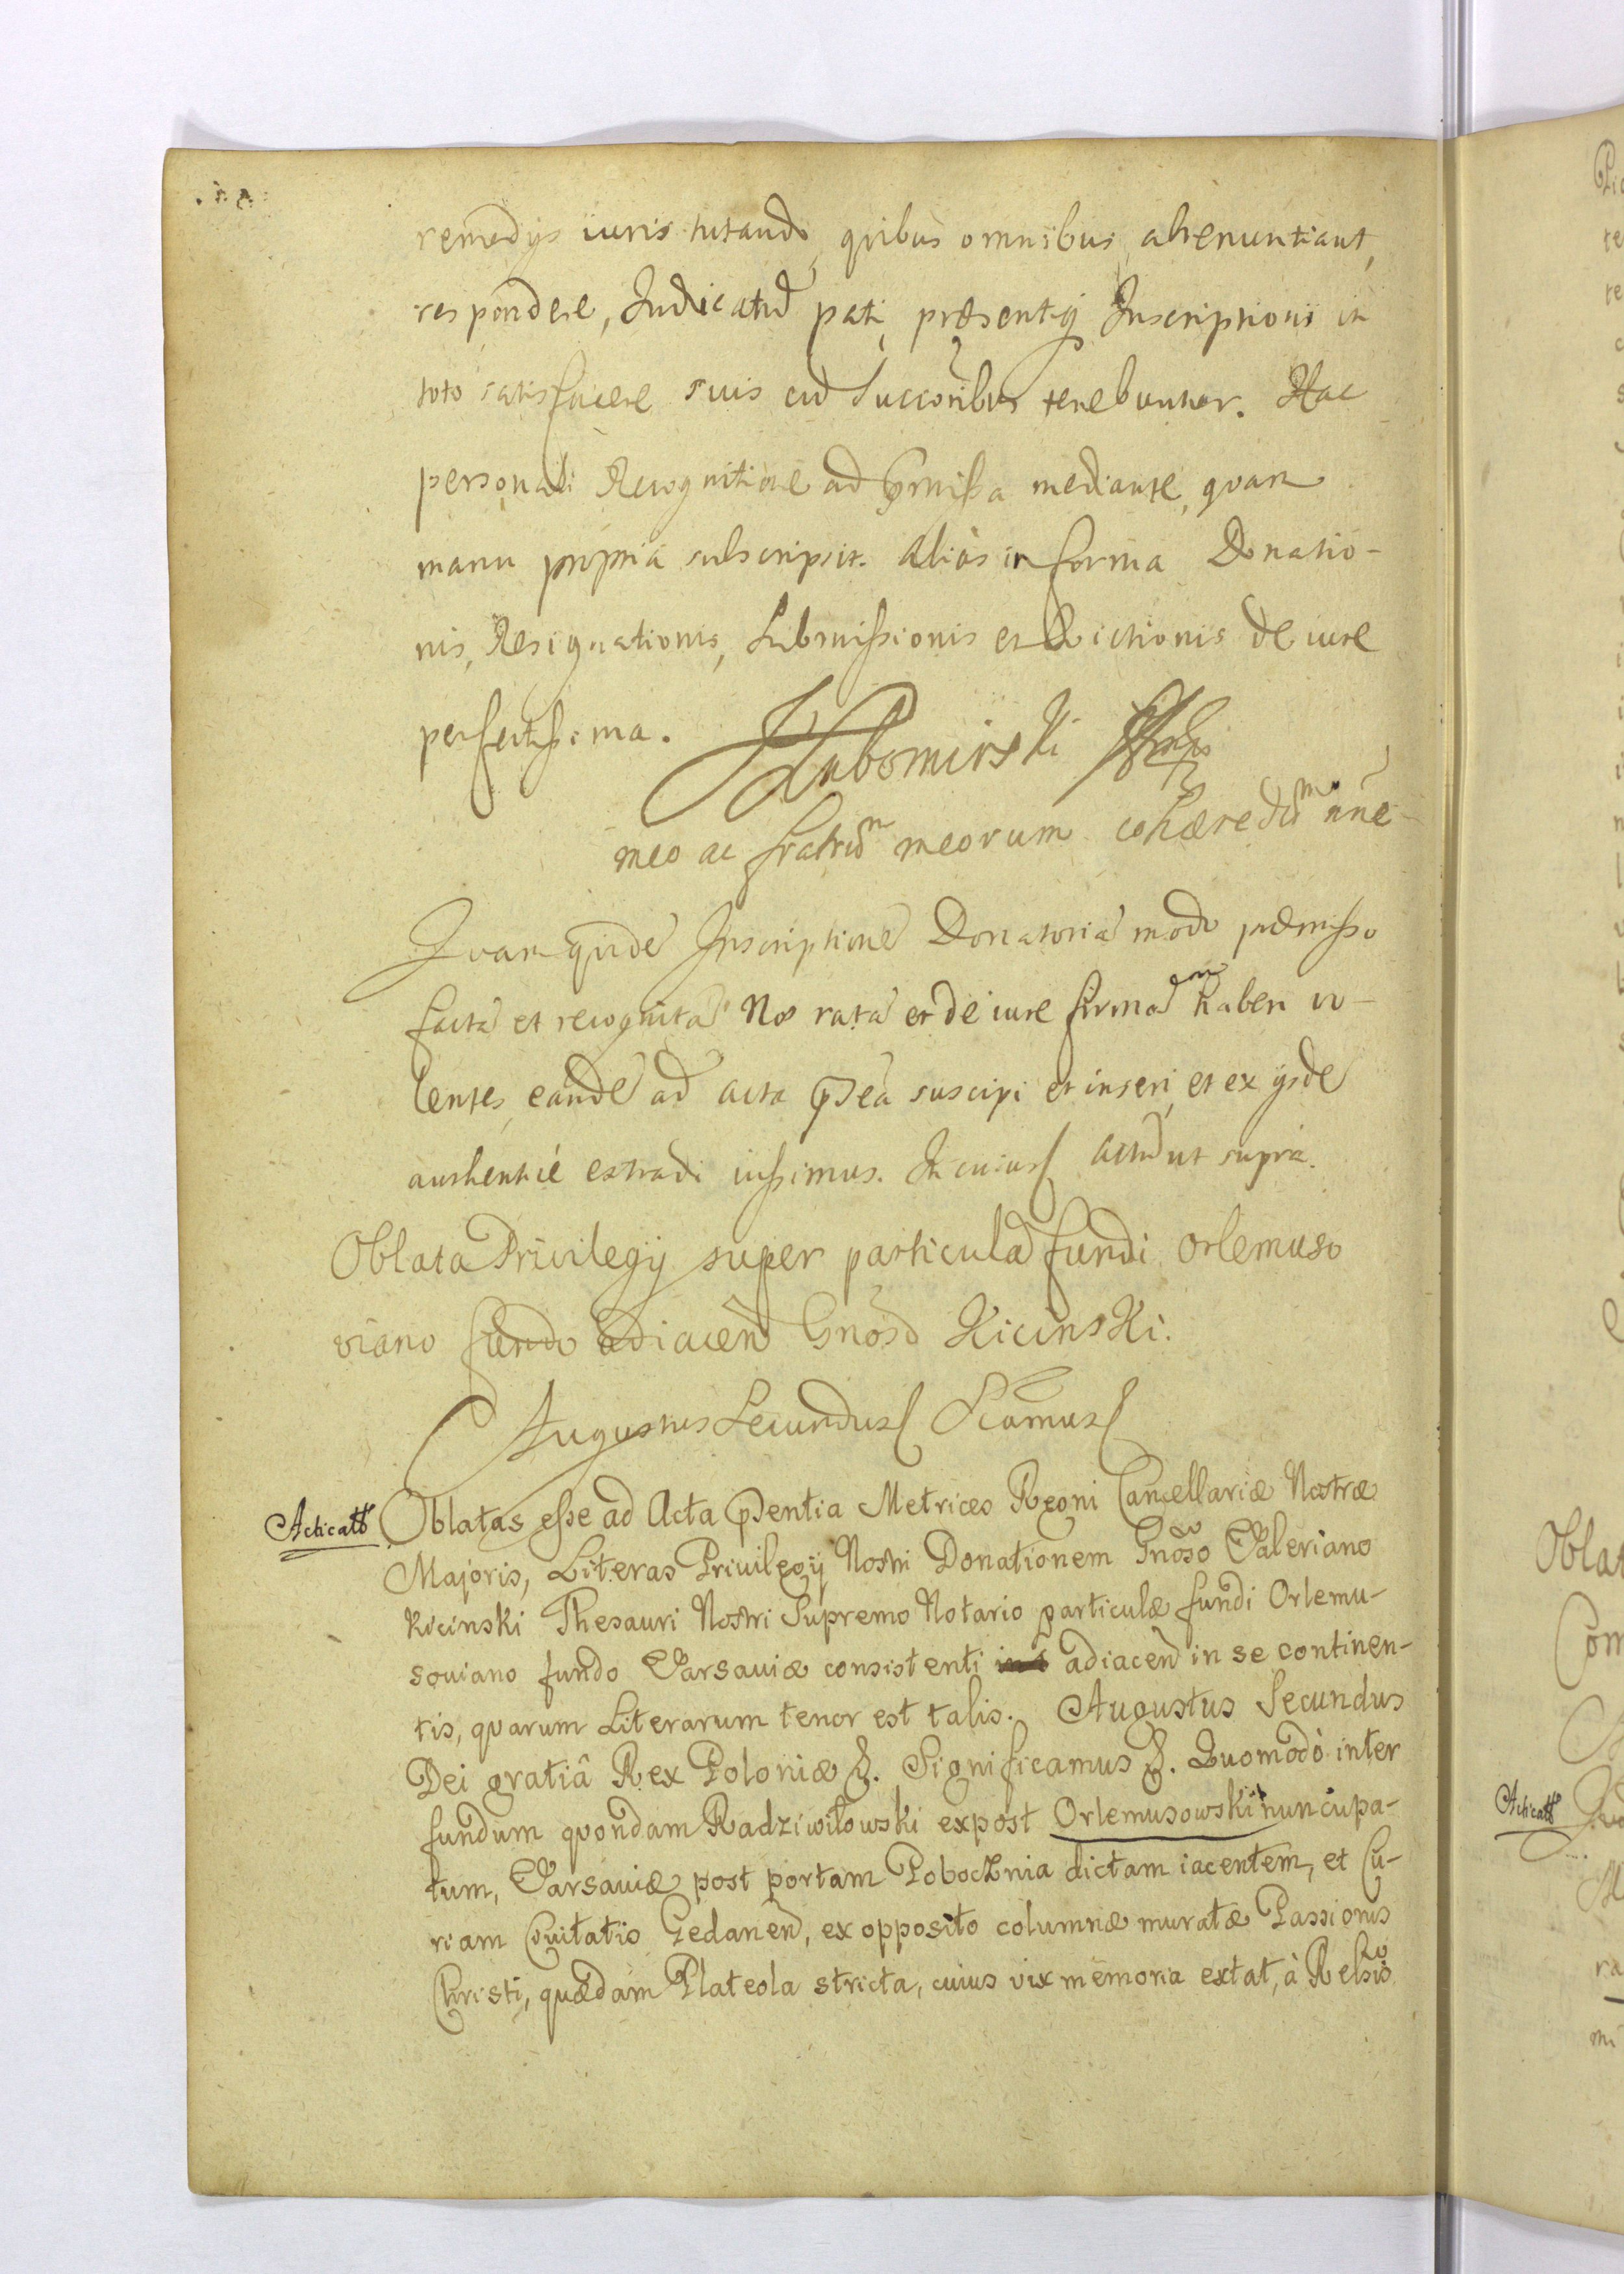 remedijs iuris tutando, quibus omnibus abrenuntiant,
respondere, Judicatū pati, præsentiq₃ Inscriptioni in
toto satisfacere suis cū Succōribus tenebuntur. Hac
personali Recognitione ad p̄missa mediante, quam
manu propria subscripsit. Aliàs in forma Donatio-
nis, Resignationis, Submissionis et Evictionis de iure
perfectissima. Lubomirski
meo ac fratrūm meorum cohæredūm nñe
Quam quidē Inscriptionē Donatoriā modo præmisso
factā et recognitā Nos ratā et de iure firmam haberi vo-
lentes, eandē ad acta p̄sēa suscipi et inseri, et ex ijsdē
authenticè extradi iussimus. In cuius actū ut suprà.
Oblata Privilegij super particulā fundi Orlemuso
viano fundo adiacen̄ Gnōsō Kicinski.
Augustus Secundus Sicamus
Acticatū Oblatas esse ad Acta p̄sentia Metrices Regni Cancellariæ Nostræ
Majoris, Literas Privilegij Nostri Donationem Gnōso Valeriano
Kicinski Thesauri Nostri Supremo Notario particulæ fundi Orlemu-
soviano fundo Varsaviæ consistenti adiacen̄ in se continen-
tis, quarum Literarum tenor est talis. Augustus Secundus
Dei gratiâ Rex Poloniæ &. Significamus &. Quomodò inter
fundum quondam Radziwiłowski expost Orlemusowski nuncupa-
tum, Varsaviæ post portam Pobocznia dictam iacentem, et Cu-
riam Civitatis Gedanen̄, ex opposito columnæ muratæ Passionis
Christi, quædam Plateola stricta, cuius vix memoria extat, à